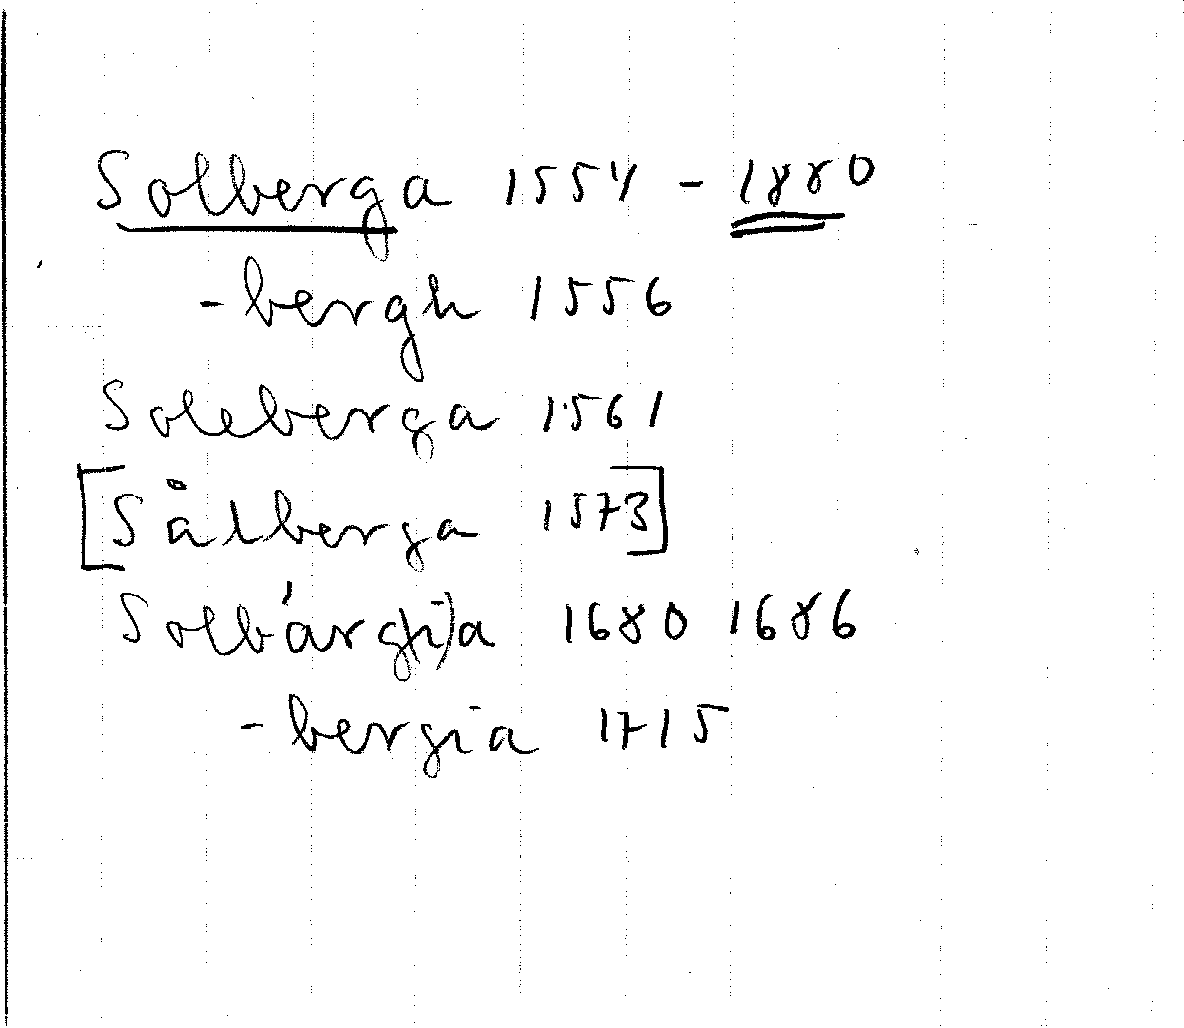 Solberga 1554 - 1880
-bergh 1556
Soleberga 1561
[Sålberga 1573]
Solbärg(i)a 1680 1686
-bergia 1715